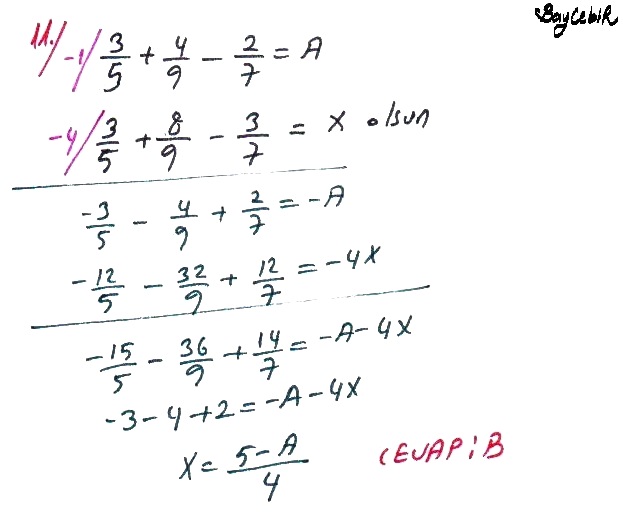 BayCebiR
11./ -1/ 3/5 + 4/9 - 2/7 = A
-4/ 3/5 + 8/9 - 3/7 = X olsun
-3/5 - 4/9 + 2/7 = -A
-12/5 - 32/9 + 12/7 = -4X
-15/5 - 36/9 + 14/7 = -A - 4X
-3 - 4 + 2 = -A - 4X
X = 5 - A/4
CEVAP: B